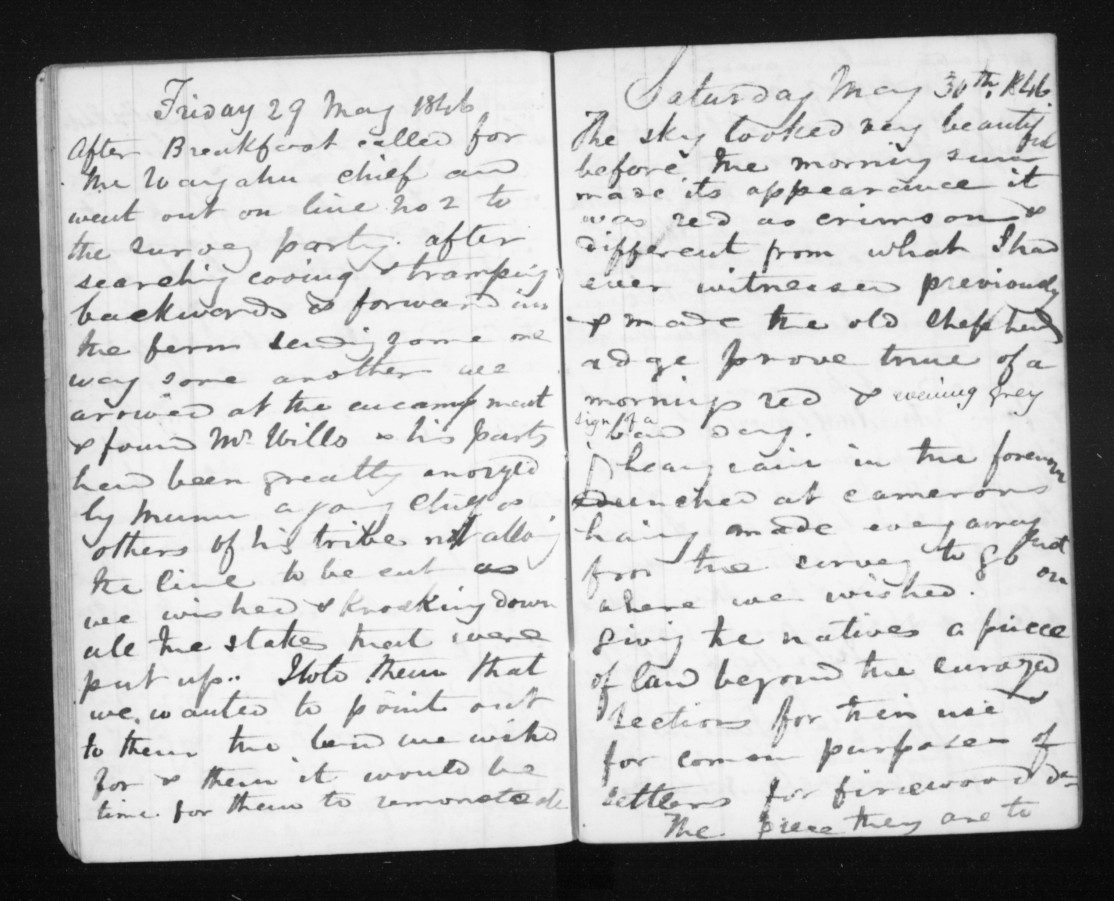 Friday 29 May 1846
After Breakfast called for
the Waryahu chief and
went out on line No 2 to
the survey party. after
searching cooing & tramping
backwords & forward in
the fern sending some one
way some another we
arrived at the encampment
& found Mr Wills & his party
had been greatly anoyed
by a young Chief &
others of his tribe not allowing
the line to be cut as
we wished & knocking down
all the stakes that were
put up.. I told them that
we wanted to point out
to them the land we wished
for & then it would be
time for them to remonstrate
Saturday May 30th. 1846
The sky looked very beautiful
before the morning sun
made its appearance it
was red as crimson &
different from what I had
ever witnessed previously
& made the old shepherds
adge prove true of a
morning red & evening grey
sign of a
bad day.
heavy rain in the forenoon
Lunched at camerons
having made every arrangement
for the survey to go on
where we wished.
giving the natives a piece
of land beyond the surveyed
sections for their use
for comon purposes of
settlers for firewood &c
The piece they are to